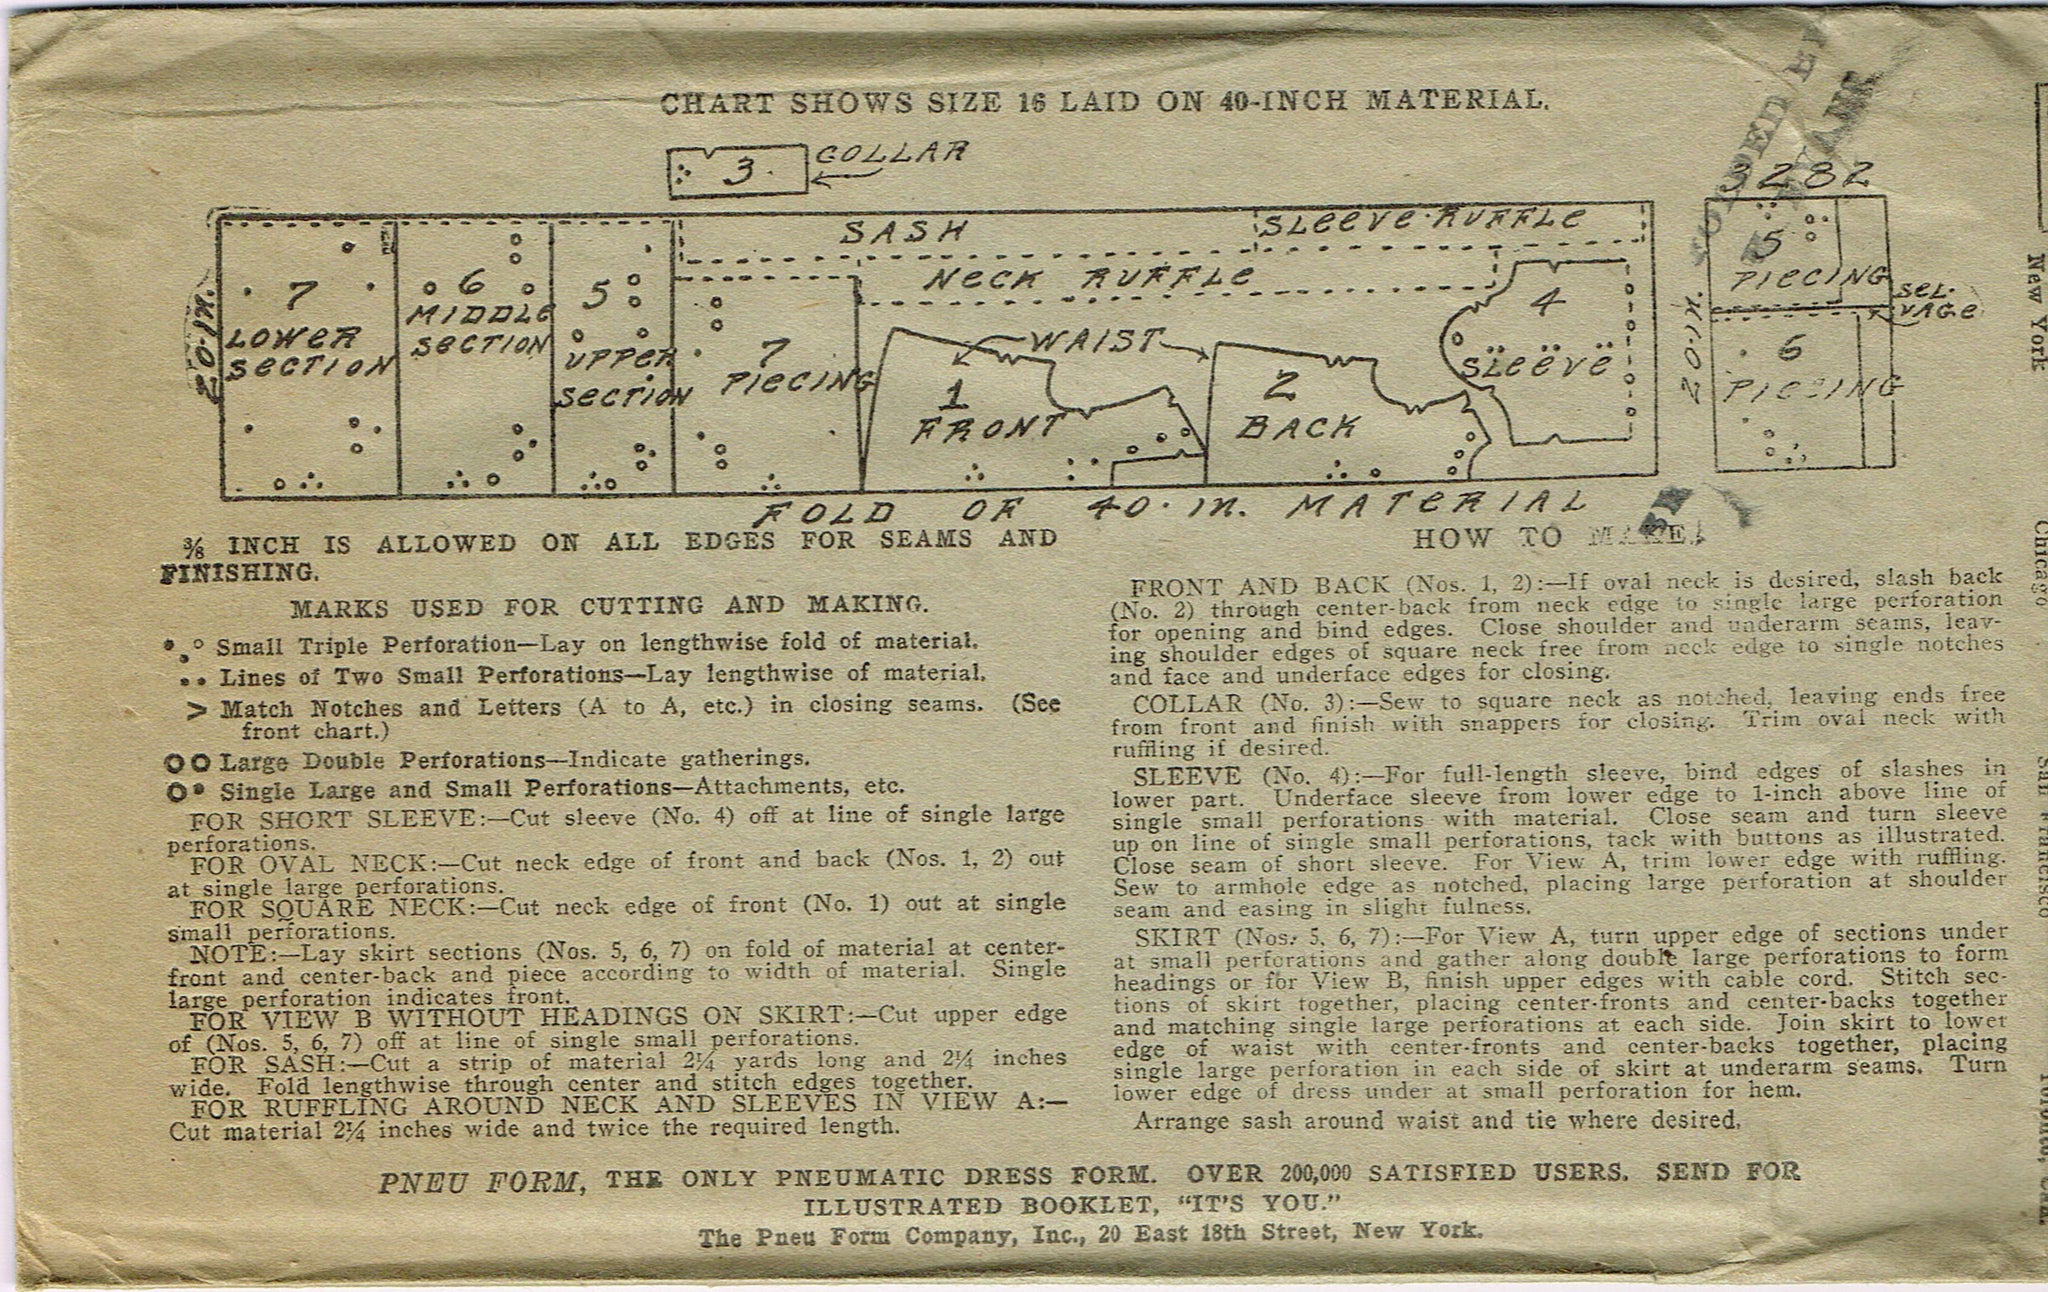 CHART SHOWS SIZE 16 LAID ON 40-INCH MATERIAL.
3.
COLLAR
3282
20.IN.
7
LOWER
SECTION
6
MIDDLE
SECTION
5
UPPER
SECTION
SASH
SLEEVE-RUFFLE
NECK RUFFLE
7
PIECING
WAIST
1
FRONT
2
BACK
4
SLEEVE
20.IN.
5
PIECING
SEL-
VAGE
6
PIECING
FOLD OF 40.IN. MATERIAL
⅜ INCH IS ALLOWED ON ALL EDGES FOR SEAMS AND
FINISHING.
MARKS USED FOR CUTTING AND MAKING.
Small Triple Perforation—Lay on lengthwise fold of material.
Lines of Two Small Perforations—Lay lengthwise of material.
> Match Notches and Letters (A to A, etc.) in closing seams. (See
front chart.)
Large Double Perforations—Indicate gatherings.
Single Large and Small Perforations—Attachments, etc.
FOR SHORT SLEEVE:—Cut sleeve (No. 4) off at line of single large
perforations.
FOR OVAL NECK:—Cut neck edge of front and back (Nos. 1, 2) out
at single large perforations.
FOR SQUARE NECK:—Cut neck edge of front (No. 1) out at single
small perforations.
NOTE:—Lay skirt sections (Nos. 5, 6, 7) on fold of material at center-
front and center-back and piece according to width of material. Single
large perforation indicates front.
FOR VIEW B WITHOUT HEADINGS ON SKIRT:—Cut upper edge
of (Nos. 5, 6, 7) off at line of single small perforations.
FOR SASH:—Cut a strip of material 2¼ yards long and 2¼ inches
wide. Fold lengthwise through center and stitch edges together.
FOR RUFFLING AROUND NECK AND SLEEVES IN VIEW A:—
Cut material 2¼ inches wide and twice the required length.
HOW TO MAKE.
FRONT AND BACK (Nos. 1, 2):—If oval neck is desired, slash back
(No. 2) through center-back from neck edge to single large perforation
for opening and bind edges. Close shoulder and underarm seams, leav-
ing shoulder edges of square neck free from neck edge to single notches
and face and underface edges for closing.
COLLAR (No. 3):—Sew to square neck as notched, leaving ends free
from front and finish with snappers for closing. Trim oval neck with
ruffling if desired.
SLEEVE (No. 4):—For full-length sleeve, bind edges of slashes in
lower part. Underface sleeve from lower edge to 1-inch above line of
single small perforations with material. Close seam and turn sleeve
up on line of single small perforations, tack with buttons as illustrated.
Close seam of short sleeve. For View A, trim lower edge with ruffling.
Sew to armhole edge as notched, placing large perforation at shoulder
seam and easing in slight fulness.
SKIRT (Nos. 5, 6, 7):—For View A, turn upper edge of sections under
at small perforations and gather along double large perforations to form
headings or for View B, finish upper edges with cable cord. Stitch sec-
tions of skirt together, placing center-fronts and center-backs together
and matching single large perforations at each side. Join skirt to lower
edge of waist with center-fronts and center-backs together, placing
single large perforation in each side of skirt at underarm seams. Turn
lower edge of dress under at small perforation for hem.
Arrange sash around waist and tie where desired.
PNEU FORM, THE ONLY PNEUMATIC DRESS FORM. OVER 200,000 SATISFIED USERS. SEND FOR
ILLUSTRATED BOOKLET, "IT'S YOU."
The Pneu Form Company, Inc., 20 East 18th Street, New York.
New York
Chicago
San Francisco
Toronto, Can.